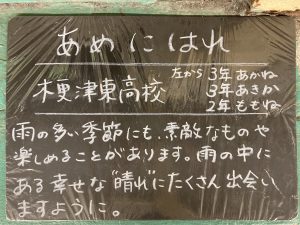 あめにはれ
木更津東高校 左から 3年 あかね
3年 あきか
2年 ももね
雨の多い季節にも、素敵なものや
楽しめることがあります。雨の中に
ある幸せな"晴れ"にたくさん出会い
ますように。